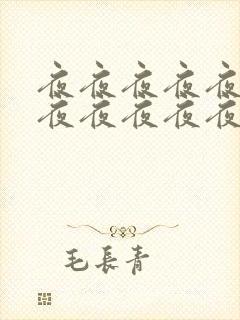 夜夜夜夜夜
夜夜夜夜夜
毛長青